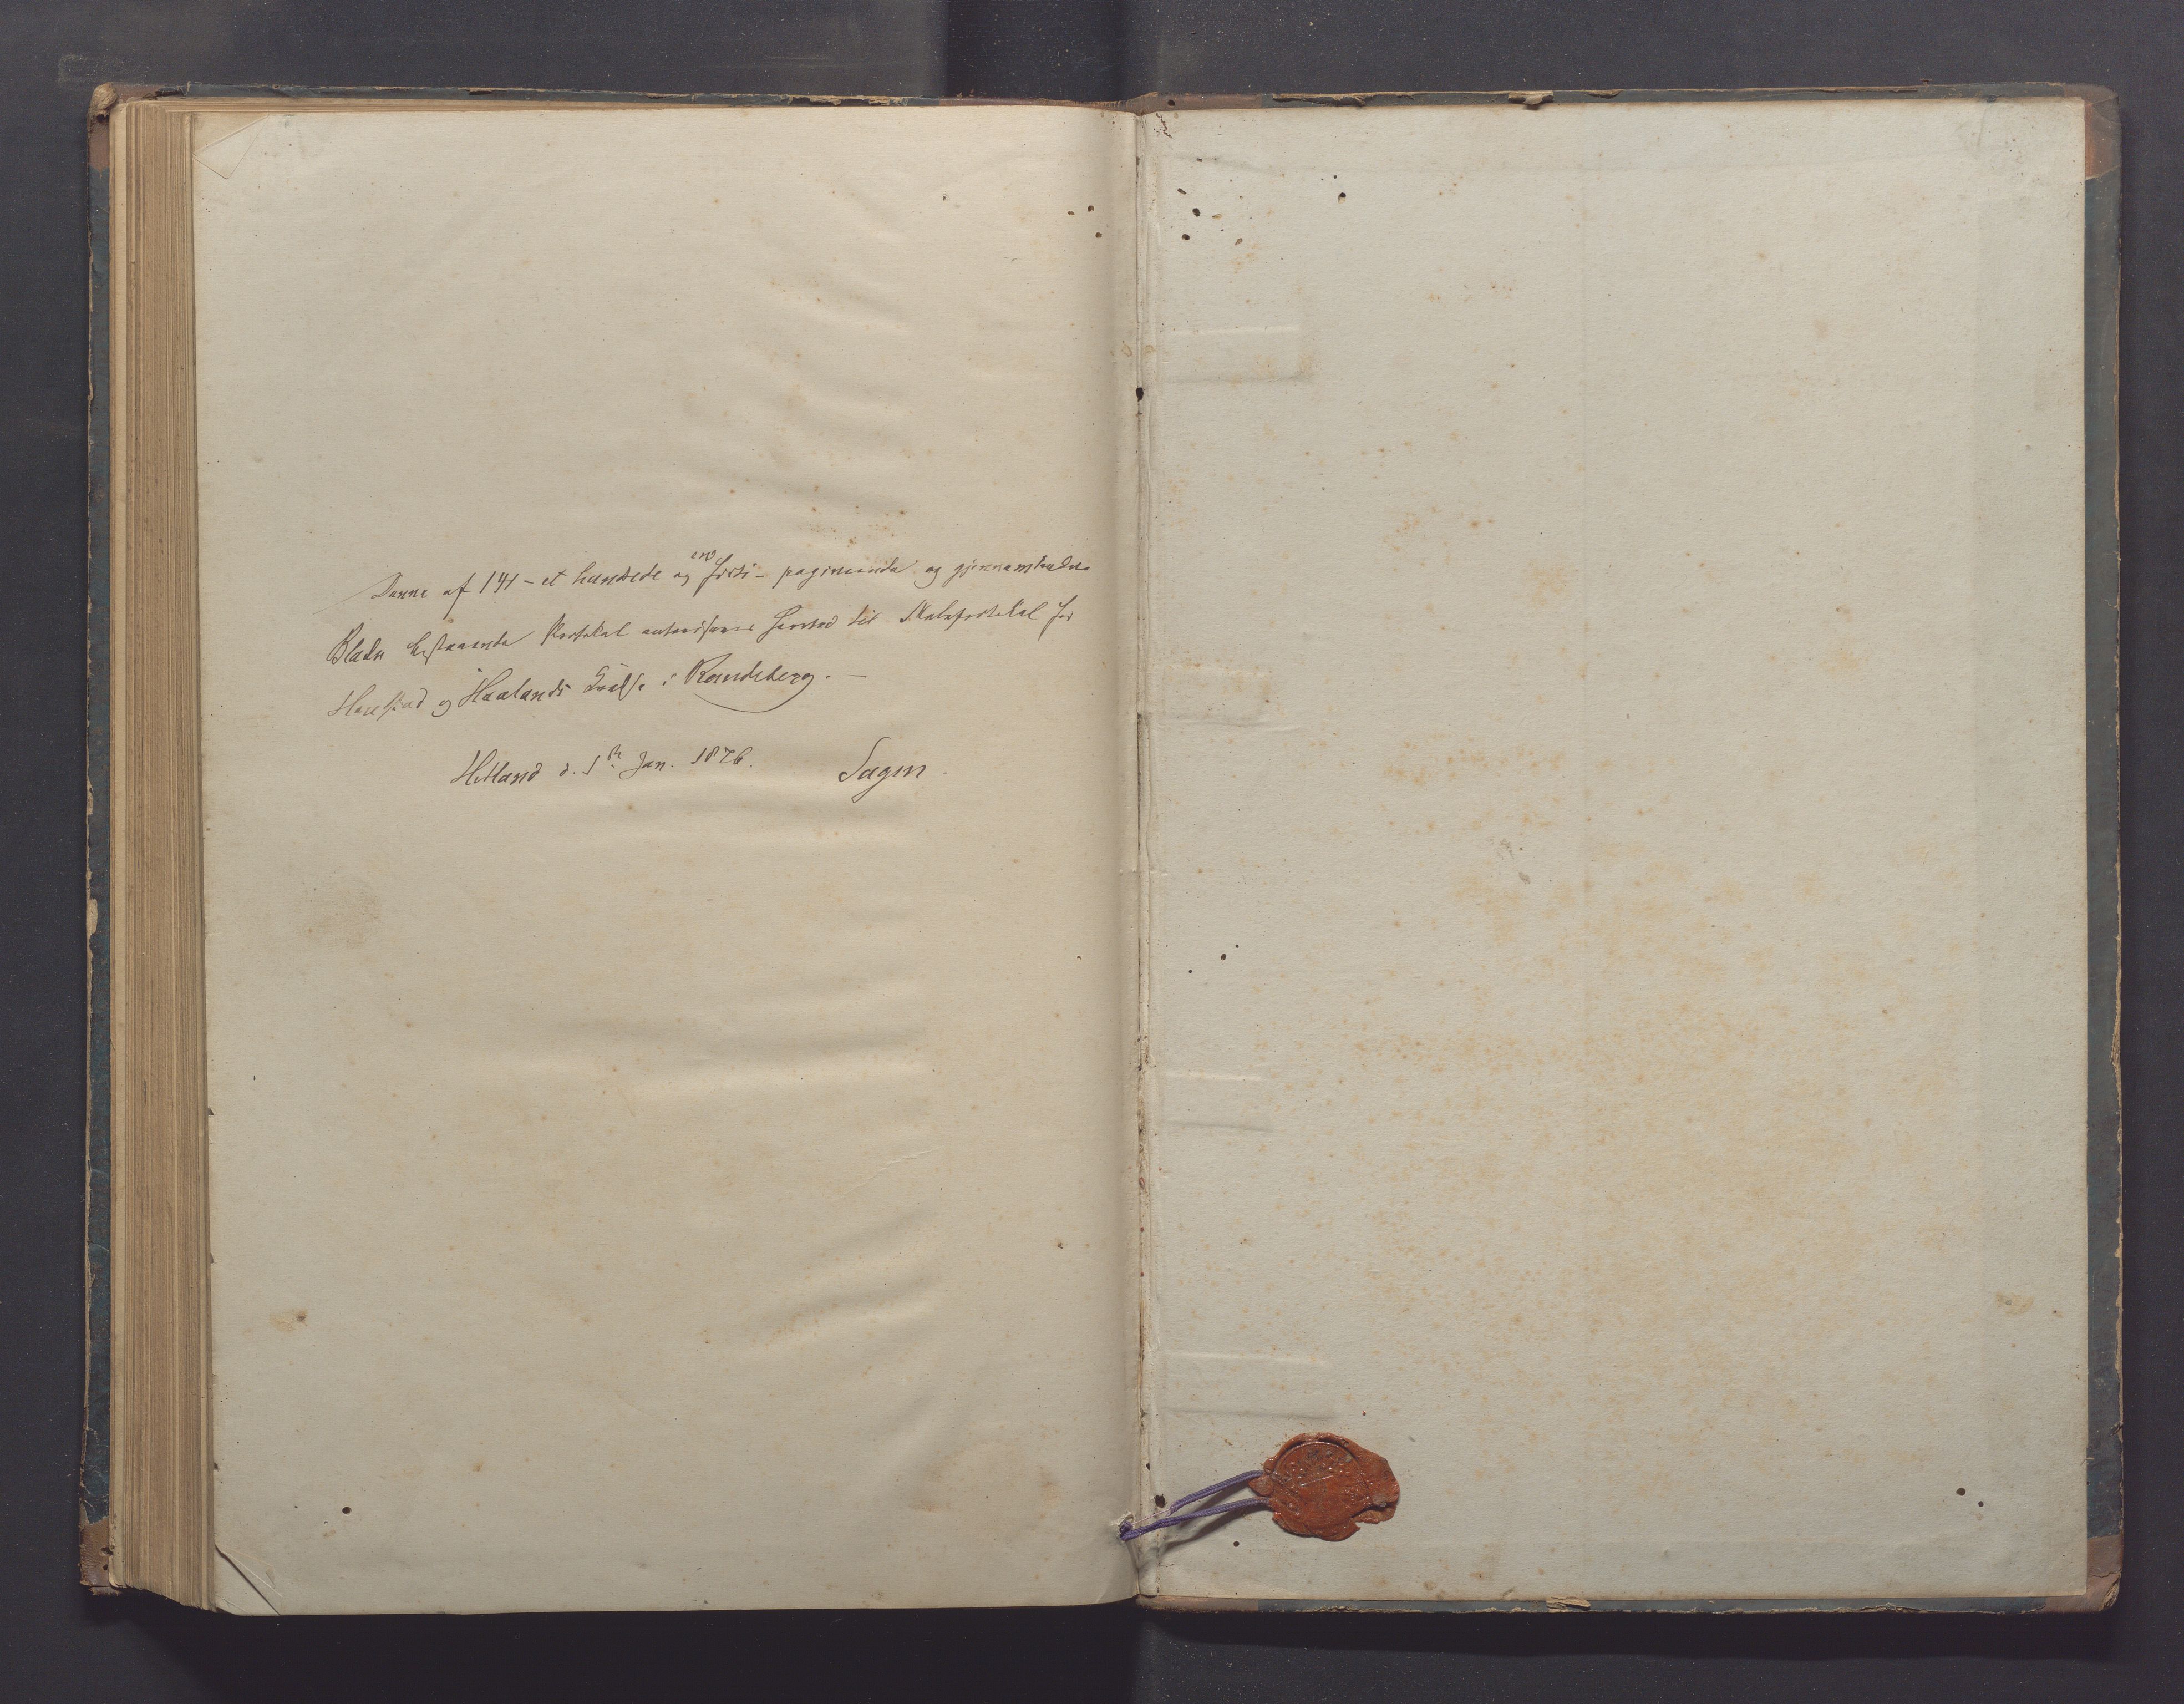 Denne af 141 - et hundrede og en førti - paginerede og gjennemtrukne
Blade bestaaende Protokol autoriseres herved til Skoleprotokol for
Harestad og Haalands Kredse i Randeberg. -
Hetland d. 1ste Jan. 1876. Sagen.